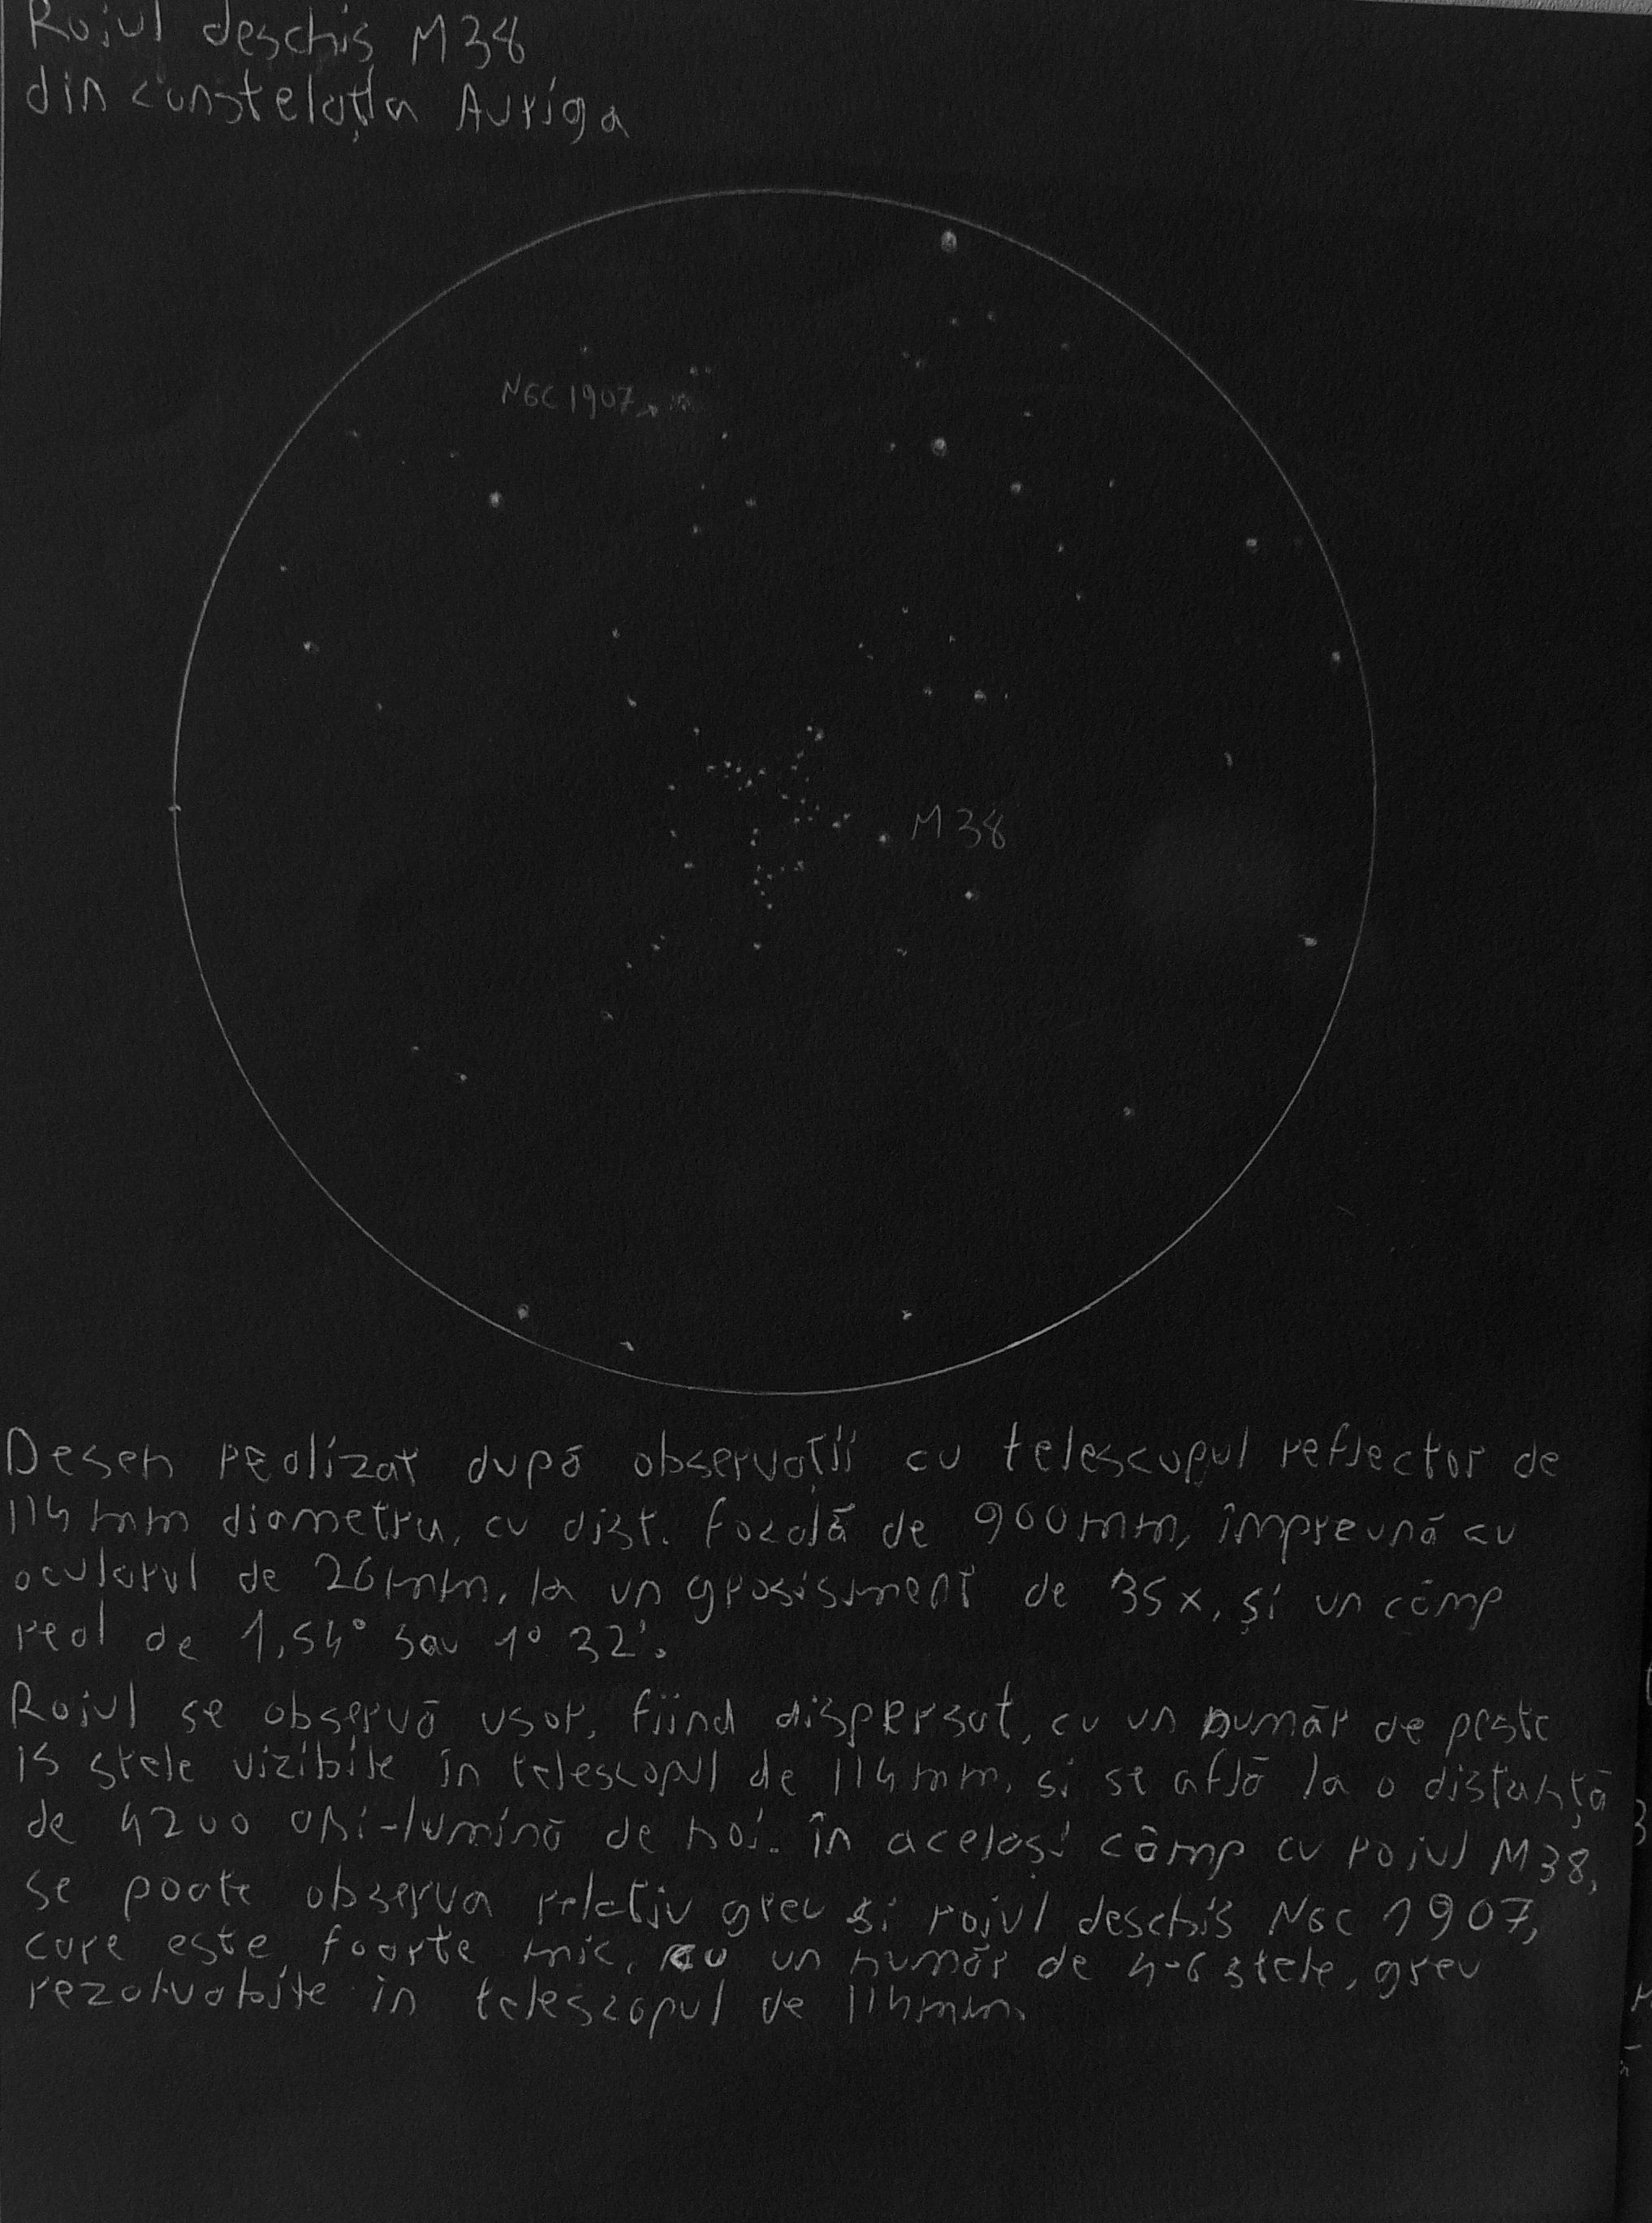 Roiul deschis M38
din constelația Auriga
NGC 1907
M38
Desen realizat după observații cu telescopul reflector de
114mm diametru, cu dist. focală de 900mm, împreună cu
ocularul de 26mm, la un grosisment de 35x, și un câmp
real de 1,54° sau 1° 32'.
Roiul se observă usor, fiind dispersat, cu un număr de peste
15 stele vizibile în telescopul de 114mm, si se află la o distanță
de 4200 ani-lumină de noi. În același câmp cu roiul M38,
se poate observa relativ greu si roiul deschis NGC 1907,
care este foarte mic, cu un număr de 4-6 stele, greu
rezolvabile in telescopul de 114mm.